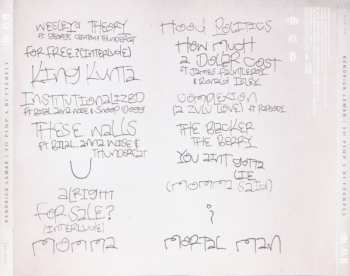 WESLEY'S THEORY
ft GEORGE CLINTON & THUNDERCAT
FOR FREE? (INTERLUDE)
KING KUNTA
INSTITUTIONALIZED
ft BILAL, ANNA WISE & SNOOP DOGG
THESE WALLS
ft BILAL, ANNA WISE &
THUNDERCAT
U
alRIGHT
FOR SALE?
(INTERLUDE)
MOMMA
HOOD POLITICS
HOW MUCH
a DOLLAR COST
ft JAMES FAUNTLEROY
& RONALD ISLEY
COMPLEXION
(a ZULU LOVE) ft RAPSODY
THE BLACKER
THE BERRY
YOU AINT GOTTA
LIE
(MOMMA SAID)
i
MORTAL MAN
KENDRICK LAMAR / TO PIMP A BUTTERFLY